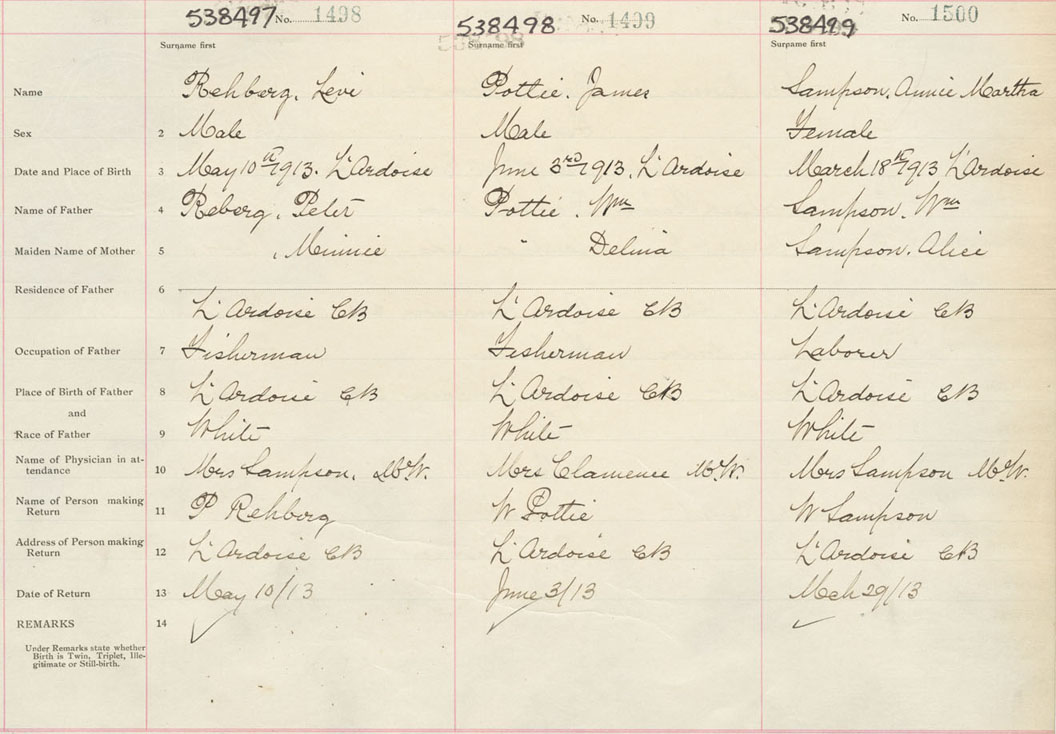 538497 No. 1498 538498 No. 1499 538499 No. 1500
Surname first Surname first Surname first
Name Rehberg, Levi Pottie. James Sampson, Annie Martha
Sex 2 Male Male Female
Date and Place of Birth 3 May 10th 1913. L'Ardoise June 3rd 1913. L'Ardoise March 18th 1913 L'Ardoise
Name of Father 4 Reberg, Peter Pottie. Wm Sampson. Wm
Maiden Name of Mother 5 , Minnie " Delina Sampson. Alice
Residence of Father 6
L'Ardoise CB L'Ardoise CB L'Ardoise CB
Occupation of Father 7 Fisherman Fisherman Laborer
Place of Birth of Father 8 L'Ardoise CB L'Ardoise CB L'Ardoise CB
and
Race of Father 9 White White White
Name of Physician in at-
tendance 10 Mrs Sampson. M.W. Mrs Clamence M.W. Mrs Sampson M.W.
Name of Person making
Return 11 P Rehberg W Pottie W Sampson
Address of Person making
Return 12 L'Ardoise CB L'Ardoise CB L'Ardoise CB
Date of Return 13 May 10/13 June 3/13 Mch 29/13
REMARKS 14
Under Remarks state whether
Birth is Twin, Triplet, Ille-
gitimate or Still-birth.